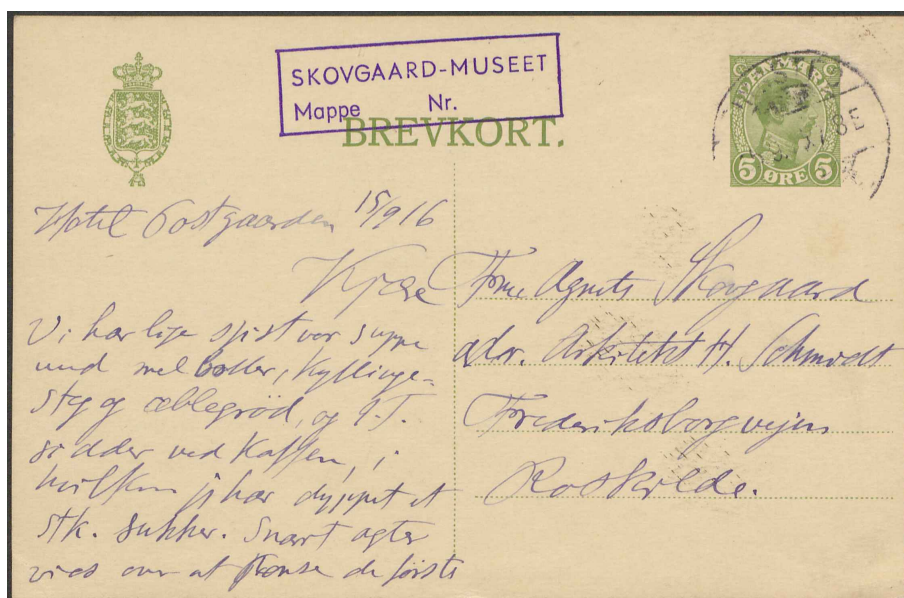 SKOVGAARD-MUSEET
Mappe Nr.
BREVKORT.
DANMARK
5 ØRE 5
Hotel Postgaarden 15/9 16
Kjære
Vi har lige spist vor suppe
med melboller, Kyllinge-
steg og æblegrød, og
sidder ved Kaffen, i
hvilken jeg har dyppet et
stk. sukker. Snart agter
vi os over at rense de første
Frue Agnete Skovgaard
adr. Arkitekt H. Schmidt
Frederiksborgvejen
Roskilde.